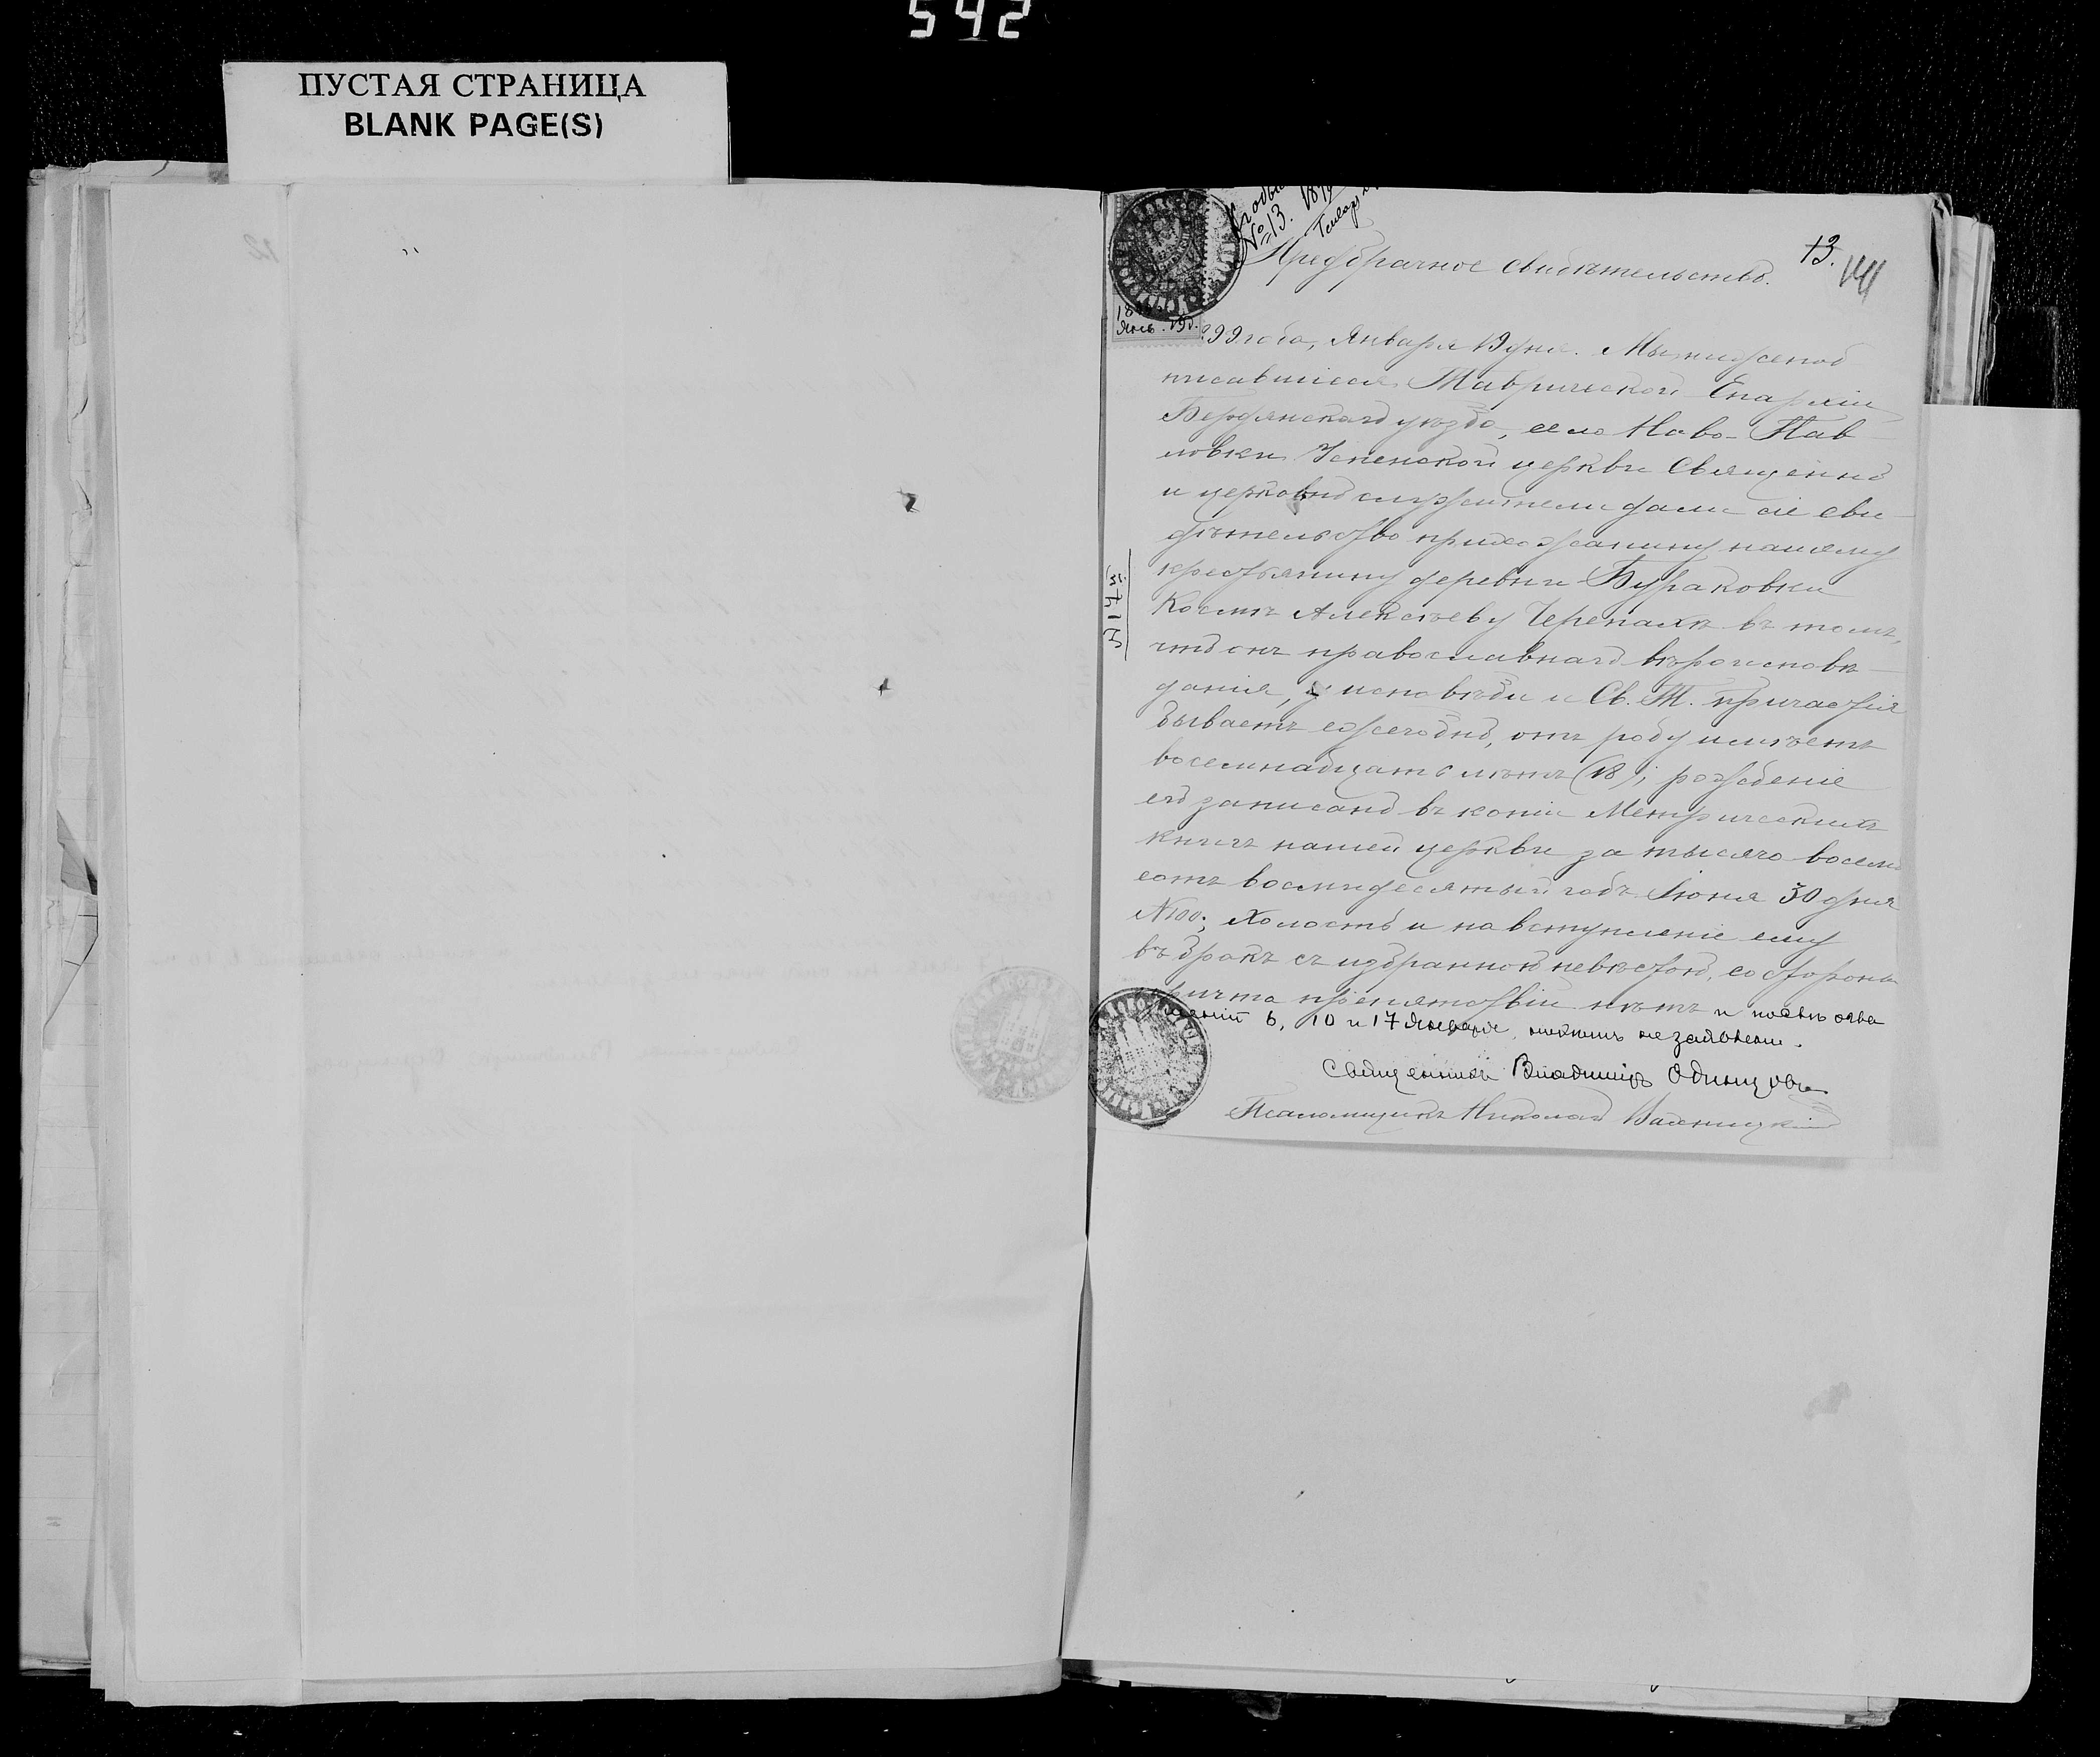 542
ПУСТАЯ СТРАНИЦА
BLANK PAGE(S)
№ 13. 189
13.
Предбрачное свидѣтельство.
18
Янв. 19 д.
99 года, Января 19 дня. Мы нижепод
писавшіеся, Таврической Епархіи,
Бердянскаго уѣзда, села Ново-Пав
ловки Успенской церкви Священно
и церковно служители дали сіе сви
дѣтельство прихожанину нашему
крестьянину деревни Бураковки
Космѣ Алексѣеву Черепахѣ въ томъ,
что онъ православнаго вѣроисповѣ
данія, у исповѣди и Св. Т. Причастія
бываетъ ежегодно, отъ роду имѣетъ
восемнадцать лѣтъ (18); рожденіе
его записано въ копіи Метрическихъ
книгъ нашей церкви за тысячо восемь
сотъ восмидесятый годъ Іюня 30 дня
№ 100; Холостъ и на вступленіе ему
въ бракъ съ избранною невѣстою, со стороны
причта препятствій нѣтъ и послѣ огла
шеній 6, 10 и 17 Января, никѣмъ не заявлены.
Священникъ Владиміръ Одинцовъ
Псаломщикъ Николай
№ 174